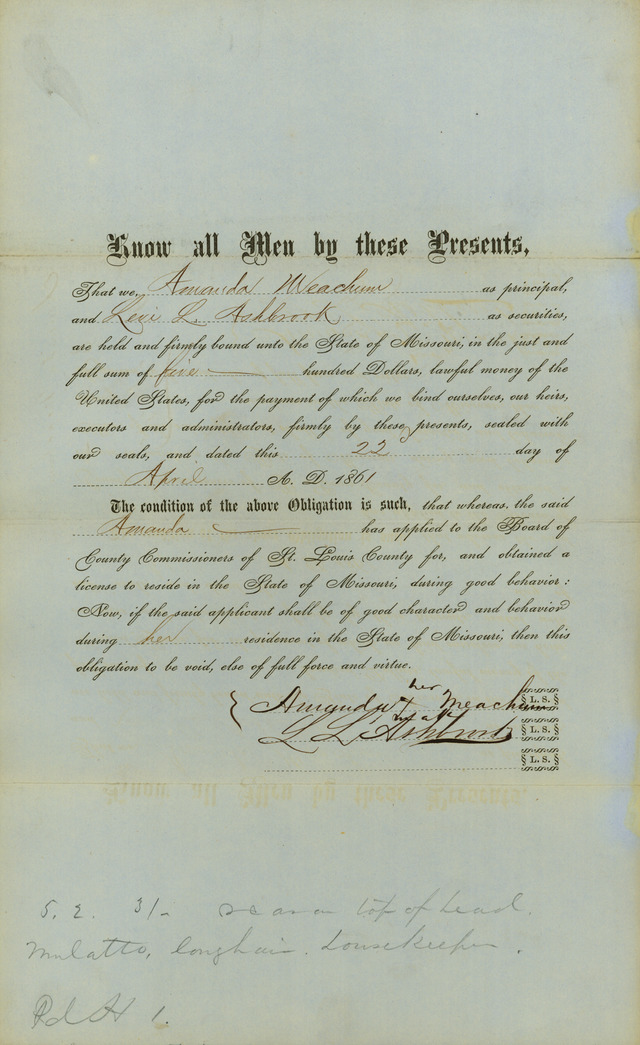 Know all Men by these Presents,
That we, Amanda Meachum as principal,
and Levi L. Ashbrook as securities,
are held and firmly bound unto the State of Missouri, in the just and
full sum of five hundred Dollars, lawful money of the
United States, for the payment of which we bind ourselves, our heirs,
executors and administrators, firmly by these presents, sealed with
our seals, and dated this 22 day of
April A. D. 1861
The condition of the above Obligation is such, that whereas, the said
Amanda has applied to the Board of
County Commissioners of St. Louis County for, and obtained a
license to reside in the State of Missouri, during good behavior:
Now, if the said applicant shall be of good character and behavior
during her residence in the State of Missouri, then this
obligation to be void, else of full force and virtue.
her
Amanda x Meachum § L. S. §
mark
L L Ashbrook § L. S. §
§ L. S. §
5. 2. 31- scar on top of head.
Mulatto, long hair. housekeeper.
1.